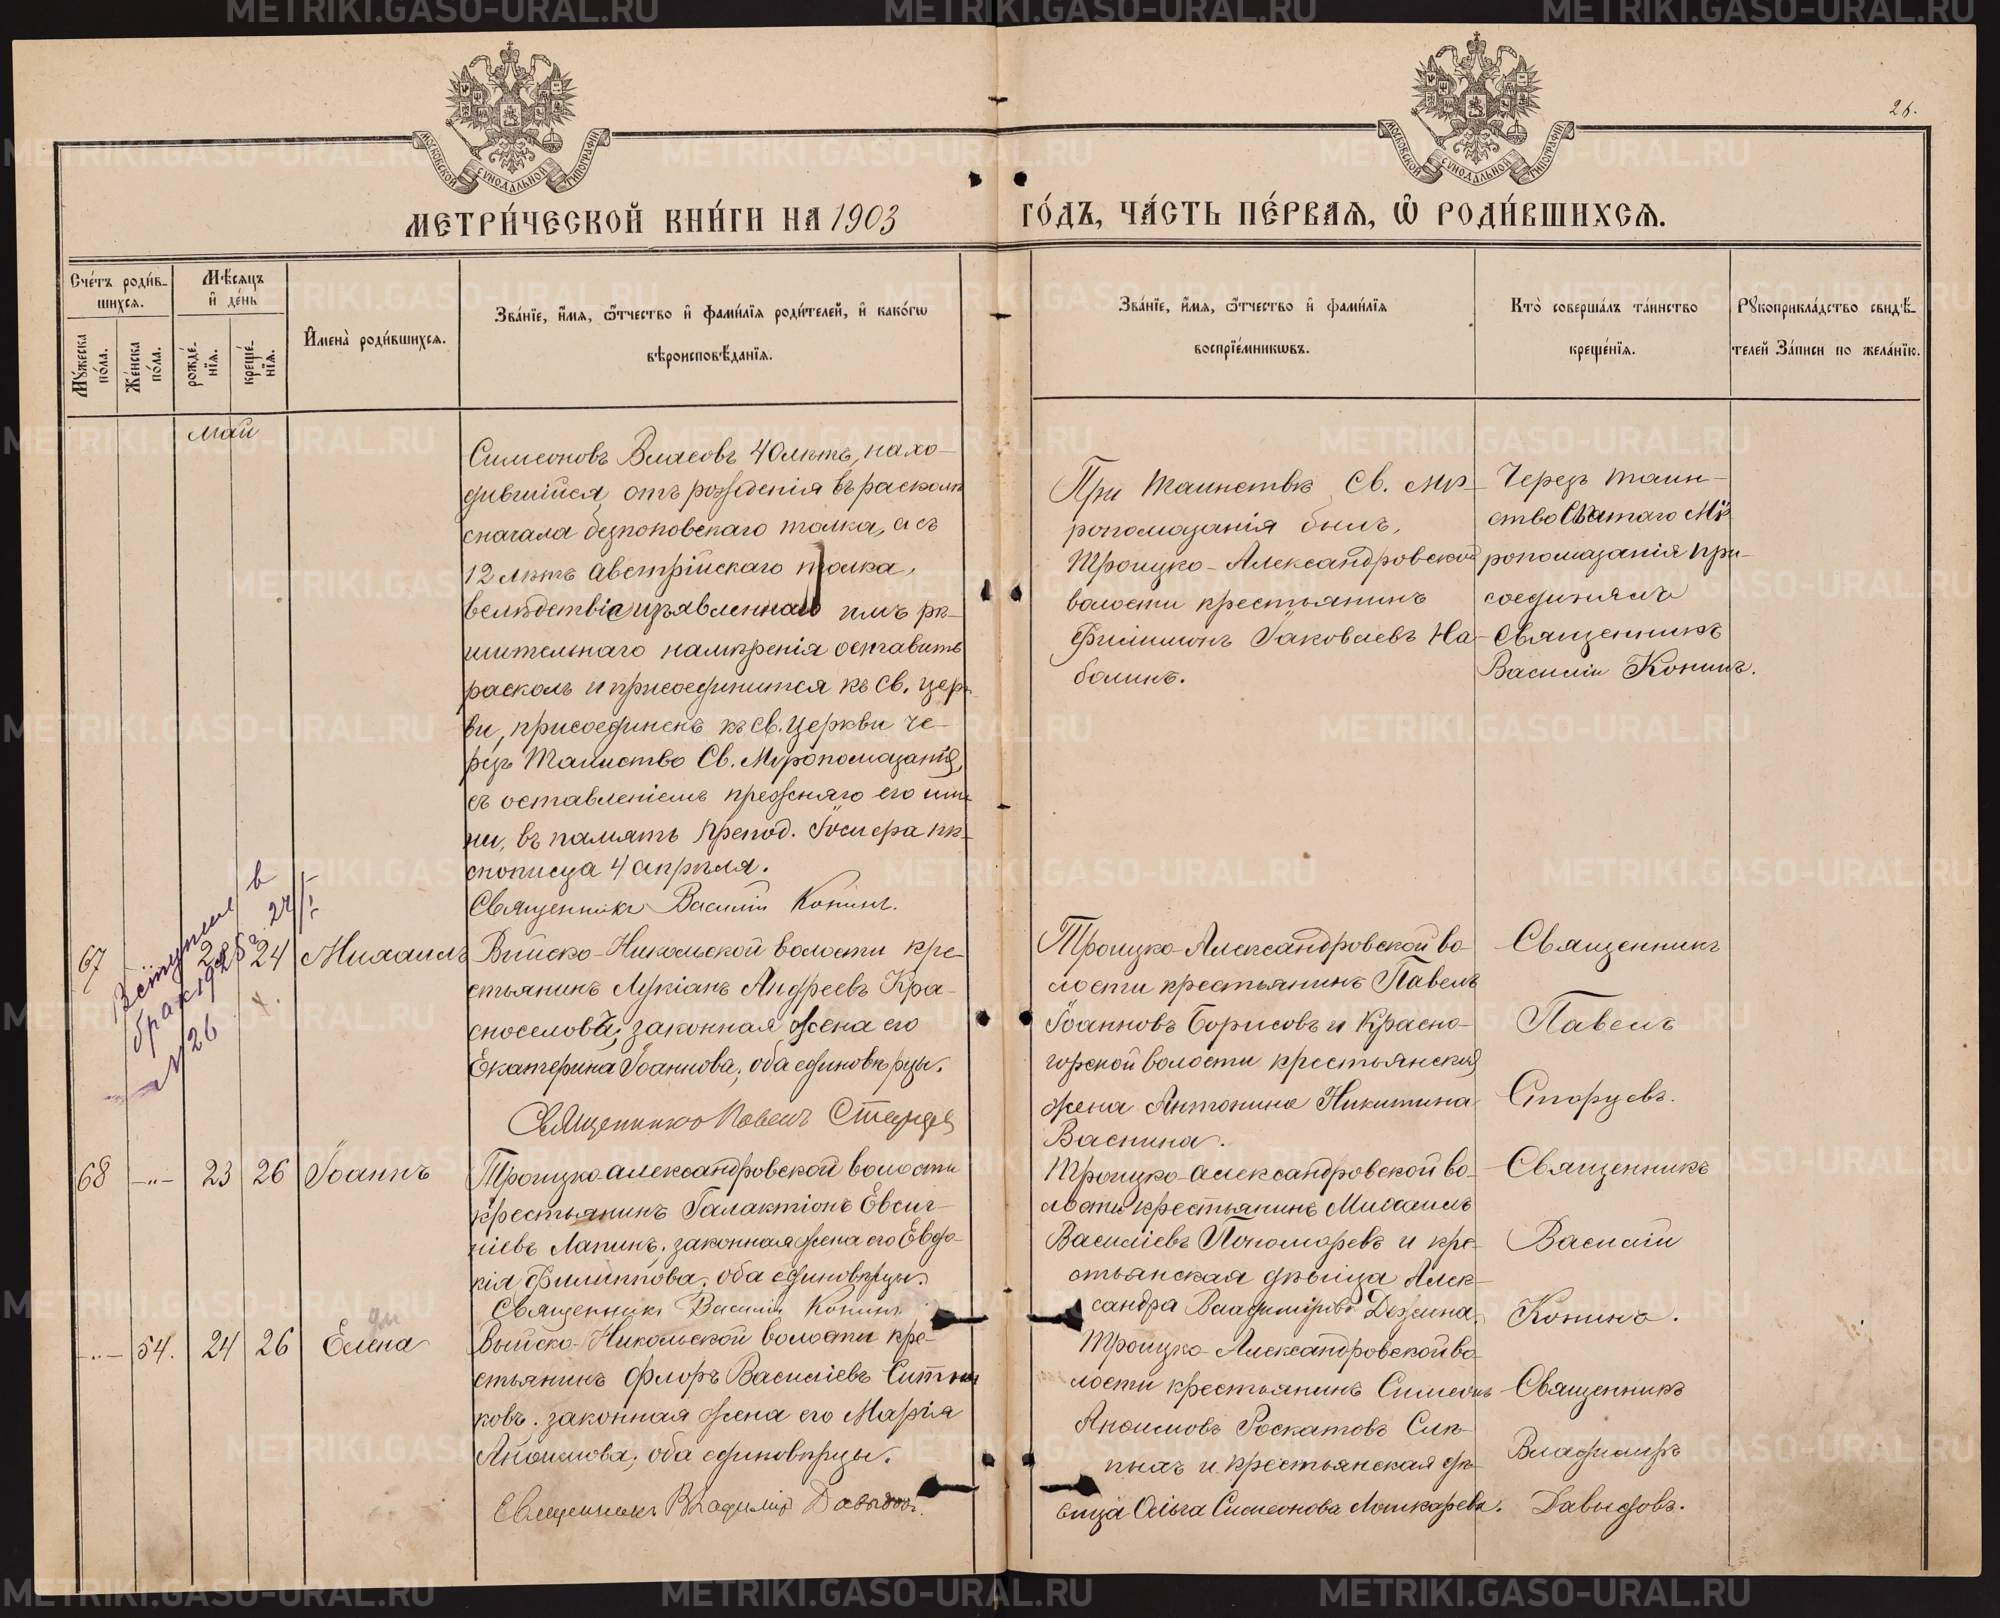 26.
МОСКОВСКОЙ СѴНОДАЛЬНОЙ ТИПОГРАФІИ
МОСКОВСКОЙ СѴНОДАЛЬНОЙ ТИПОГРАФІИ
МЕТРИ́ЧЕСКОЙ КНИ́ГИ НА 1903
ГО́ДЪ, ЧА́СТЬ ПЕ́РВАѦ, Ѽ РОДИ́ВШИХСѦ.
Сче́тъ роди́в-
шихсѧ.
Мꙋ́жеска по́ла.
Же́нска по́ла.
Мѣ́сѧцъ
и҆ де́нь
рожде́-
нїѧ.
креще́-
нїѧ.
И҆мена̀ роди́вшихсѧ.
Зва́нїе, и҆́мѧ, ѻ҆́тчество и҆ фами́лїѧ роди́телей, и҆ како́гѡ
вѣроисповѣ́данїѧ.
Зва́нїе, и҆́мѧ, ѻ҆́тчество и҆ фами́лїѧ
воспрїе́мникѡвъ.
Кто̀ соверша́лъ та́инство
креще́нїѧ.
Рꙋкоприкла́дство свидѣ́-
телей За́писи по жела́нїю.
Май
Симеоновъ Власовъ 40 лѣтъ, нахо-
дившийся отъ рожденія въ расколѣ
сначала безпоповскаго толка, а съ
12 лѣтъ австрійскаго толка,
вслѣдствіе изъявленнаго имъ рѣ-
шительнаго намѣренія оставить
расколъ и присоединится къ Св. Церк-
ви, присоединенъ къ Св. Церкви че-
резъ Таинство Св. Мѵропомазанія,
съ оставленіемъ прежняго его име-
ни, въ память Препод. Іосифа пѣ-
снописца 4 апрѣля.
Священникъ Василій Конинъ.
При Таинствѣ Св. Мѵ-
ропомазанія былъ,
Троицко-Александровской
волости крестьянинъ
Филимонъ Іаковлевъ На-
болинъ.
Черезъ таин-
ство Святаго Мѵ-
ропомазанія при-
соединялъ
Священникъ
Василій Конинъ.
Вступил в
брак 1925 г. 24/I
№ 26
67
24
Михаилъ
Выйско-Никольской волости кре-
стьянинъ Лукіанъ Андреевъ Кра-
сноселовъ; законная жена его
Екатерина Іоаннова, оба единовѣрцы.
Священникъ Павелъ
Троицко-Александровской во-
лости крестьянинъ Павелъ
Іоанновъ Борисовъ и Красно-
горской волости крестьянская
жена Антонина Никитина
Васнина.
Священникъ
Павелъ
68
-"-
23
26
Іоаннъ
Троицко-Александровской волости
крестьянинъ Галактіонъ Евсиг-
ніевъ Лапинъ. законная жена его Евдо-
кія Филиппова, оба единовѣрцы.
Священникъ Василій Конинъ
Троицко-Александровской во-
лости крестьянинъ Михаилъ
Василіевъ Пономаревъ и кре-
стьянская дѣвица Алек-
сандра Владимірова
Священникъ
Василій
Конинъ.
-"-
54.
24
26
Елена
Выйско-Никольской волости кре-
стьянинъ Флоръ Василіевъ Ситни-
ковъ. законная жена его Марія
оба единовѣрцы.
Священникъ Владимір Давыдовъ.
Троицко-Александровской во-
лости крестьянинъ Симеонъ
и крестьянская дѣ-
вица Ольга Симеонова Лошкарева.
Священникъ
Владиміръ
Давыдовъ.
METRIKI.GASO-URAL.RU